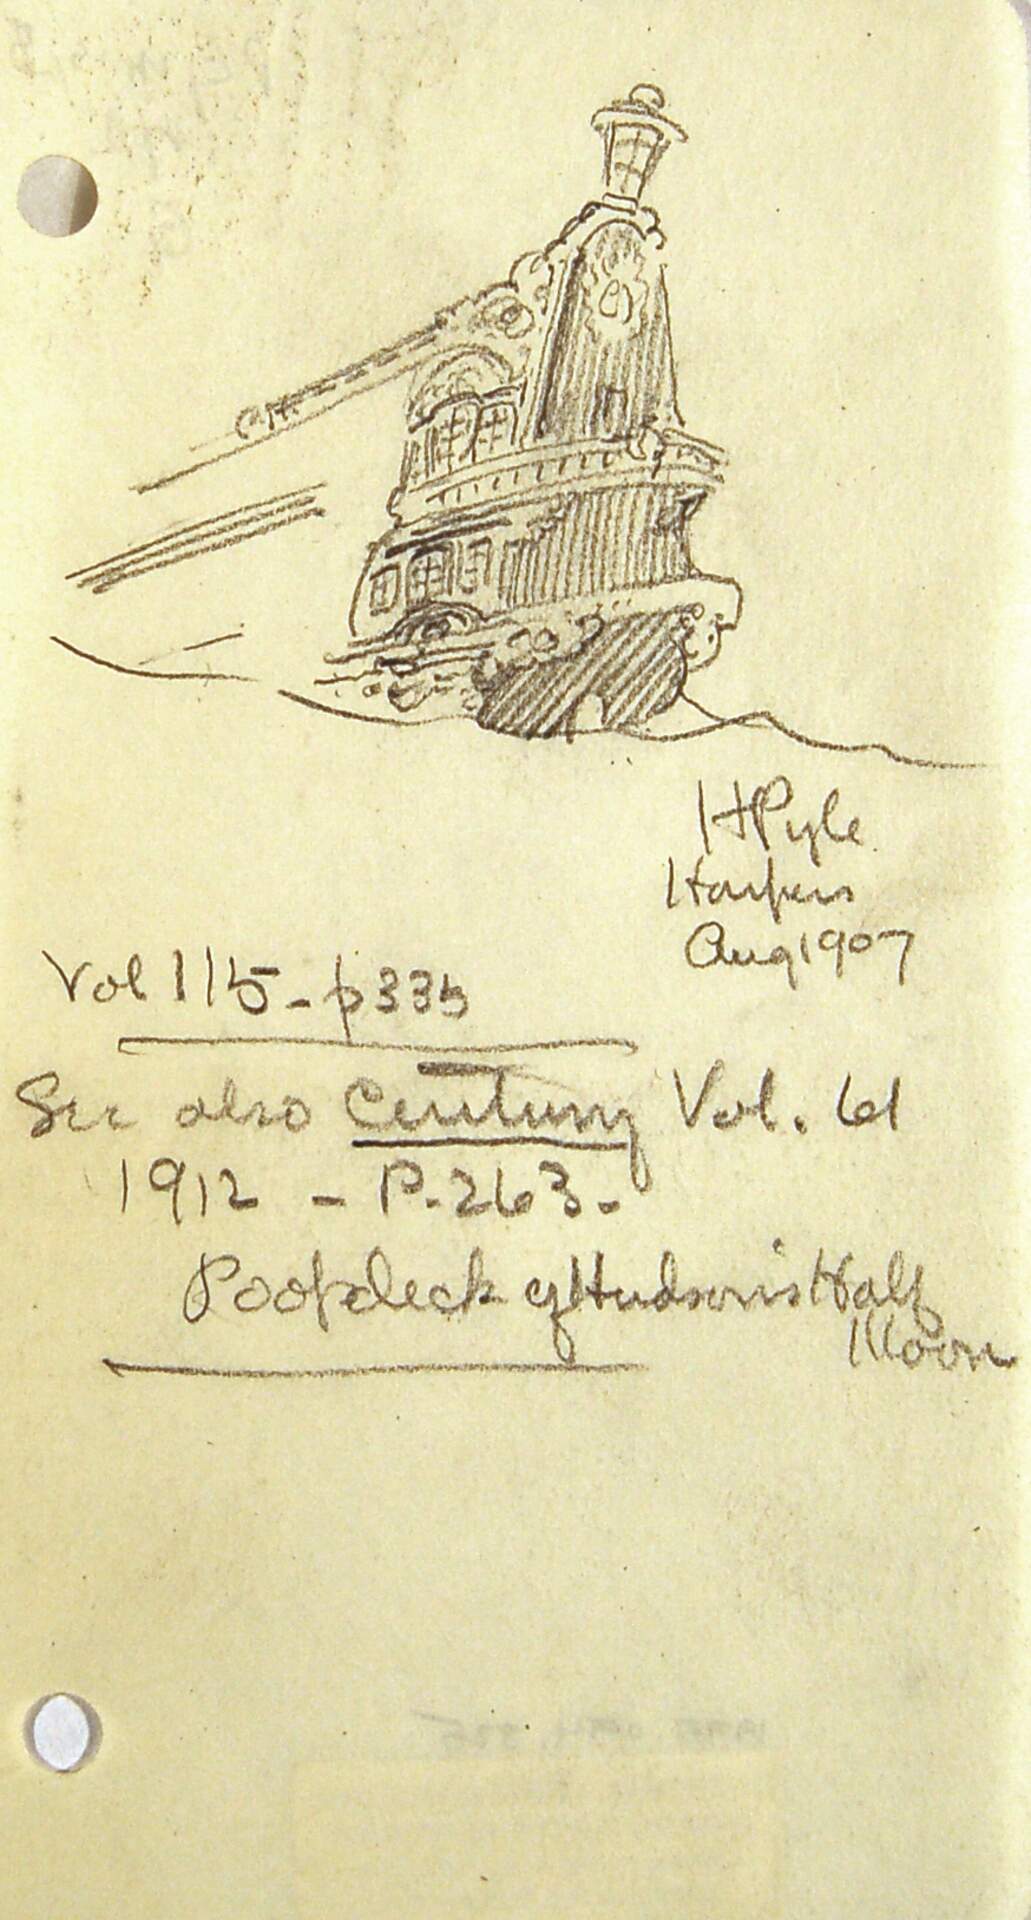 H Pyle
Harpers
Aug 1907
Vol 115 - p 335
See also Century Vol. 61
1912 - P. 263 -
Poopdeck of Hudson's Half
Moon